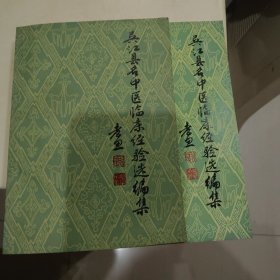 吴江县名中医临床经验选编集
吴江县名中医临床经验选编集